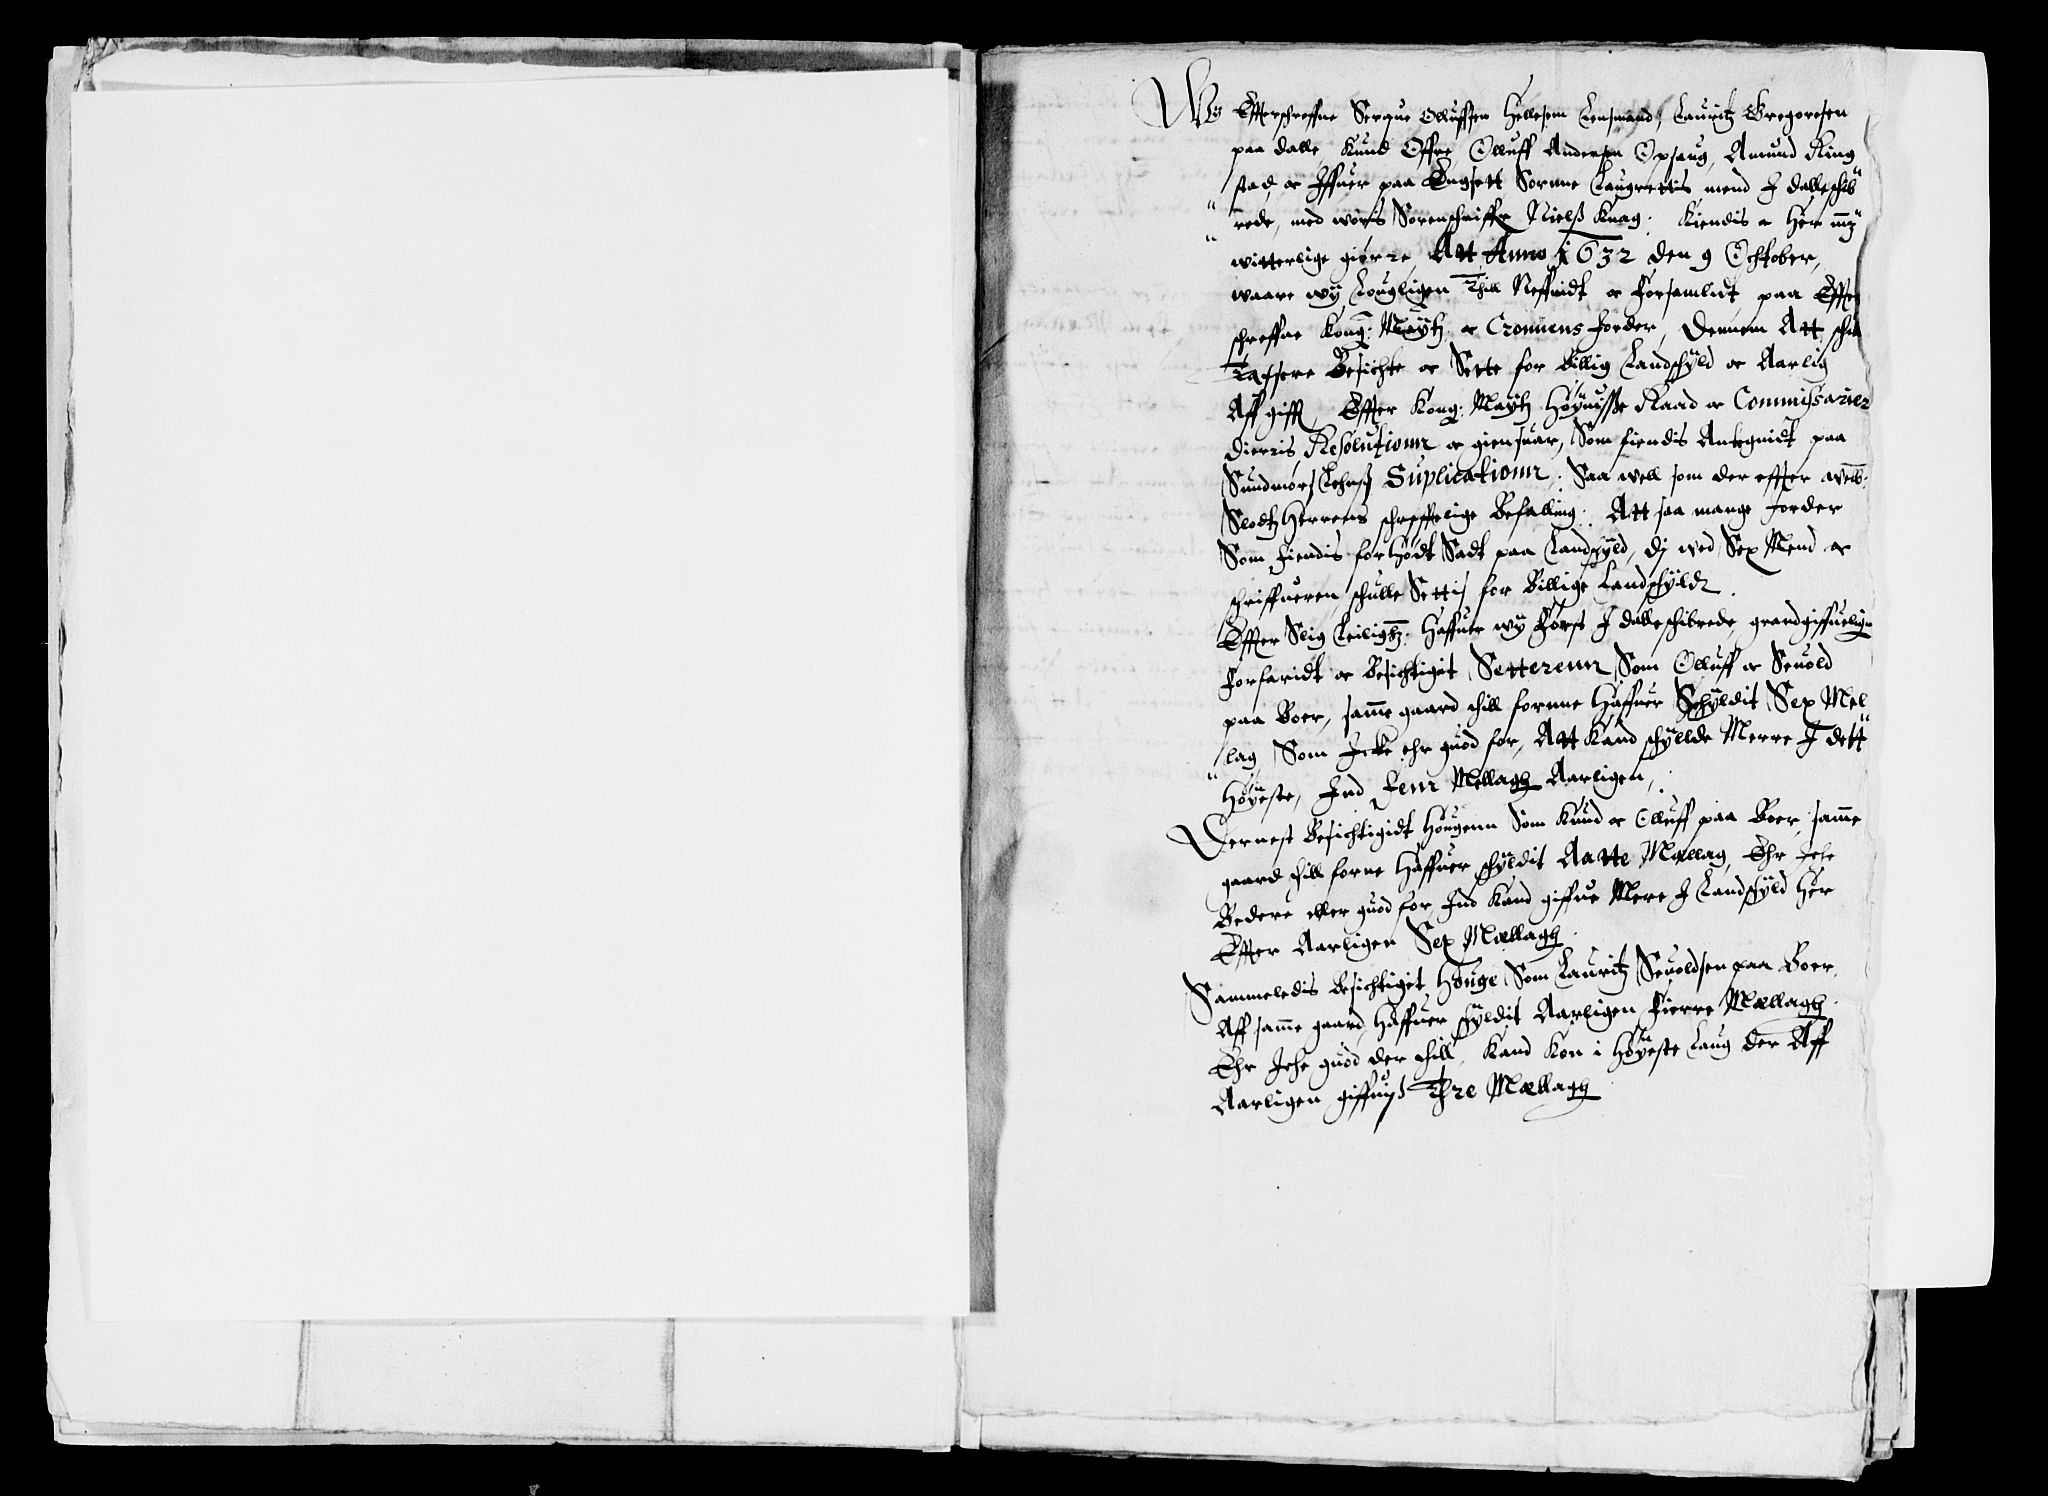 Wy Effterschreffne Serque Olluffsen Hellesem Lensmand, Lauritz Gregoresen
paa dalle, Knud Offre, Olluff Andersen Opsaug, Amund Ring
stad oc Iffuer paa Engsett Sorrne Laugrettis mend J dalleschib
rede, med woris Sorenschriffr Nielß Knag: Kiendis oc Her mz
witterlige giørre, Att Anno 1632 den 9 Ochtober,
waare wÿ Louglighen Thill Neffnidt oc forsamlit paa Effter
schreffne Kong: Maÿtz oc Cronnens Jorder, Dennem Att schu
Taxere Besichte oc Sette for billig Landschÿld oc Aarlig
Affgifft Effter Kong: Maÿtz Høÿuisse Raad oc Commissarier
dierris Resolutionn oc giensuar, Som fiendis Antegnidt paa
Sundmørs Lehnß Suplicationn, Saa well som der effter welb:
Slodtz Herrens schrefftelige Befalling: Att saa mange Jorder
Som fiendis for Hødt Sadt paa Landschÿld, dj wed Sex Mend oc
schriffueren schulle Settis for Billige Landschÿldt.
Effter Slig Leiligh: Haffuer wÿ Først J dalleschibrede, grandgiffuelign
forfaridt oc Besichtiget Setterenn Som Olluff oc Seuold
paa Boer, samme gaard thill fornne Haffuer Schÿldit Sex Mel
lag, Som Jcke ehr guod for, Att Kand schÿllde Merre J dett
Høÿeste, End Fem Mellagh Aarligen,
Dernest Besichtigidt Hougenn Som Knud oc Olluff paa Boer, samme
gaard thill forne Haffuer schÿldit Aatte Mællag, Ehr Jche
Bedere eller guod for, End Kand giffue Mere J Landschÿld Her
Effter Aarligen Sex Mællagh.
Sammeledis Besichtiget Houge, Som Lauritz Seuoldsen paa Boer,
Aff samme gaard, Haffuer schÿldit Aarligen Fierre Mællagh
Ehr Jche guod der thill, Kand Kon i Høÿeste Laug der Aff
Aarligen giffuis Thre Mællagh